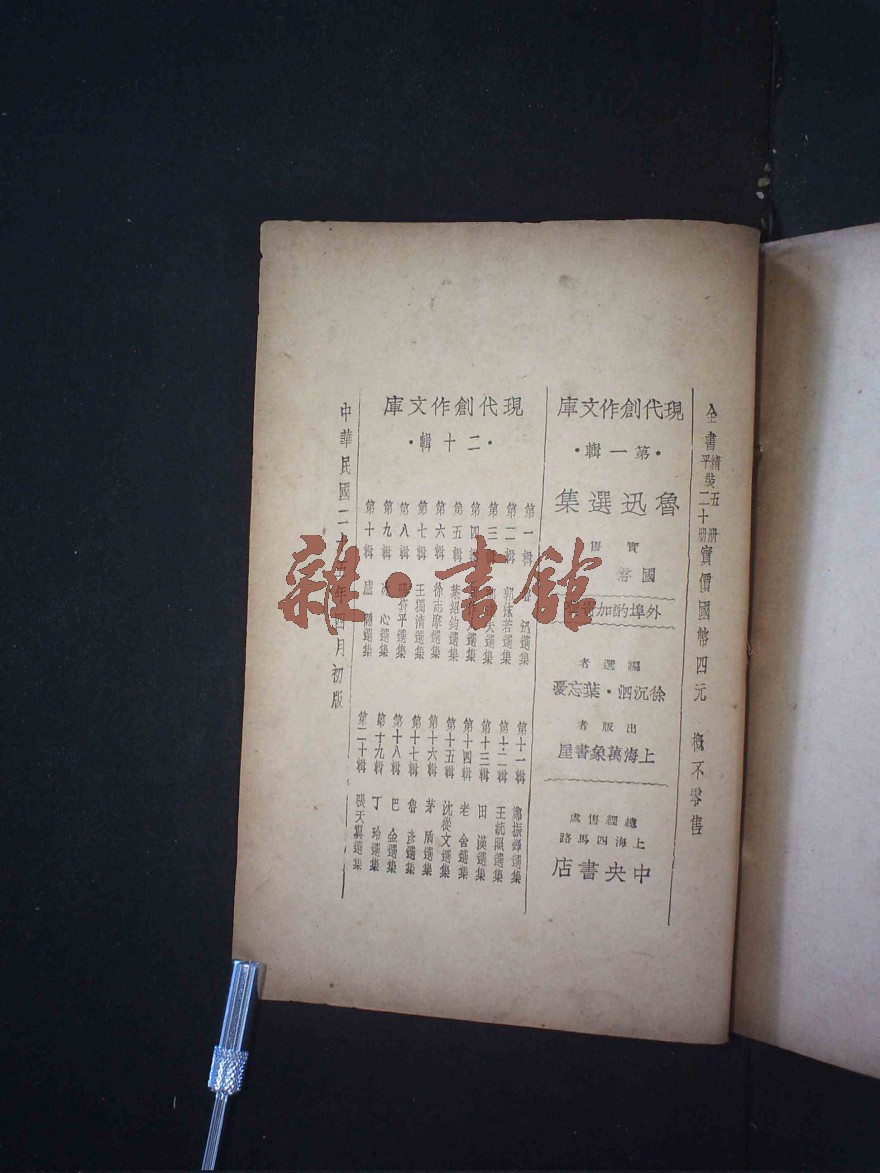 全書精裝五冊平裝二十冊實價國幣四元 概不零售
現代創作文庫
·第一輯·
魯迅選集
實售
國幣
外埠酌加
編選者
徐沉泗·葉忘憂
出版者
上海萬象書屋
總經售處
上海四馬路
中央書店
現代創作文庫
·二十輯·
第一輯 迅選集
第二輯 郭沫若選集
第三輯 夫選集
第四輯 選集
第五輯 葉紹鈞選集
第六輯 徐志摩選集
第七輯 王獨清選集
第八輯 平選集
第九輯 冰心選集
第十輯 廬隱選集
第十一輯 鄭振鐸選集
第十二輯 王統照選集
第十三輯 田漢選集
第十四輯 老舍選集
第十五輯 沈從文選集
第十六輯 茅盾選集
第十七輯 魯彥選集
第十八輯 巴金選集
第十九輯 丁玲選集
第二十輯 張天翼選集
中華民國二十五年四月初版
雜·書館